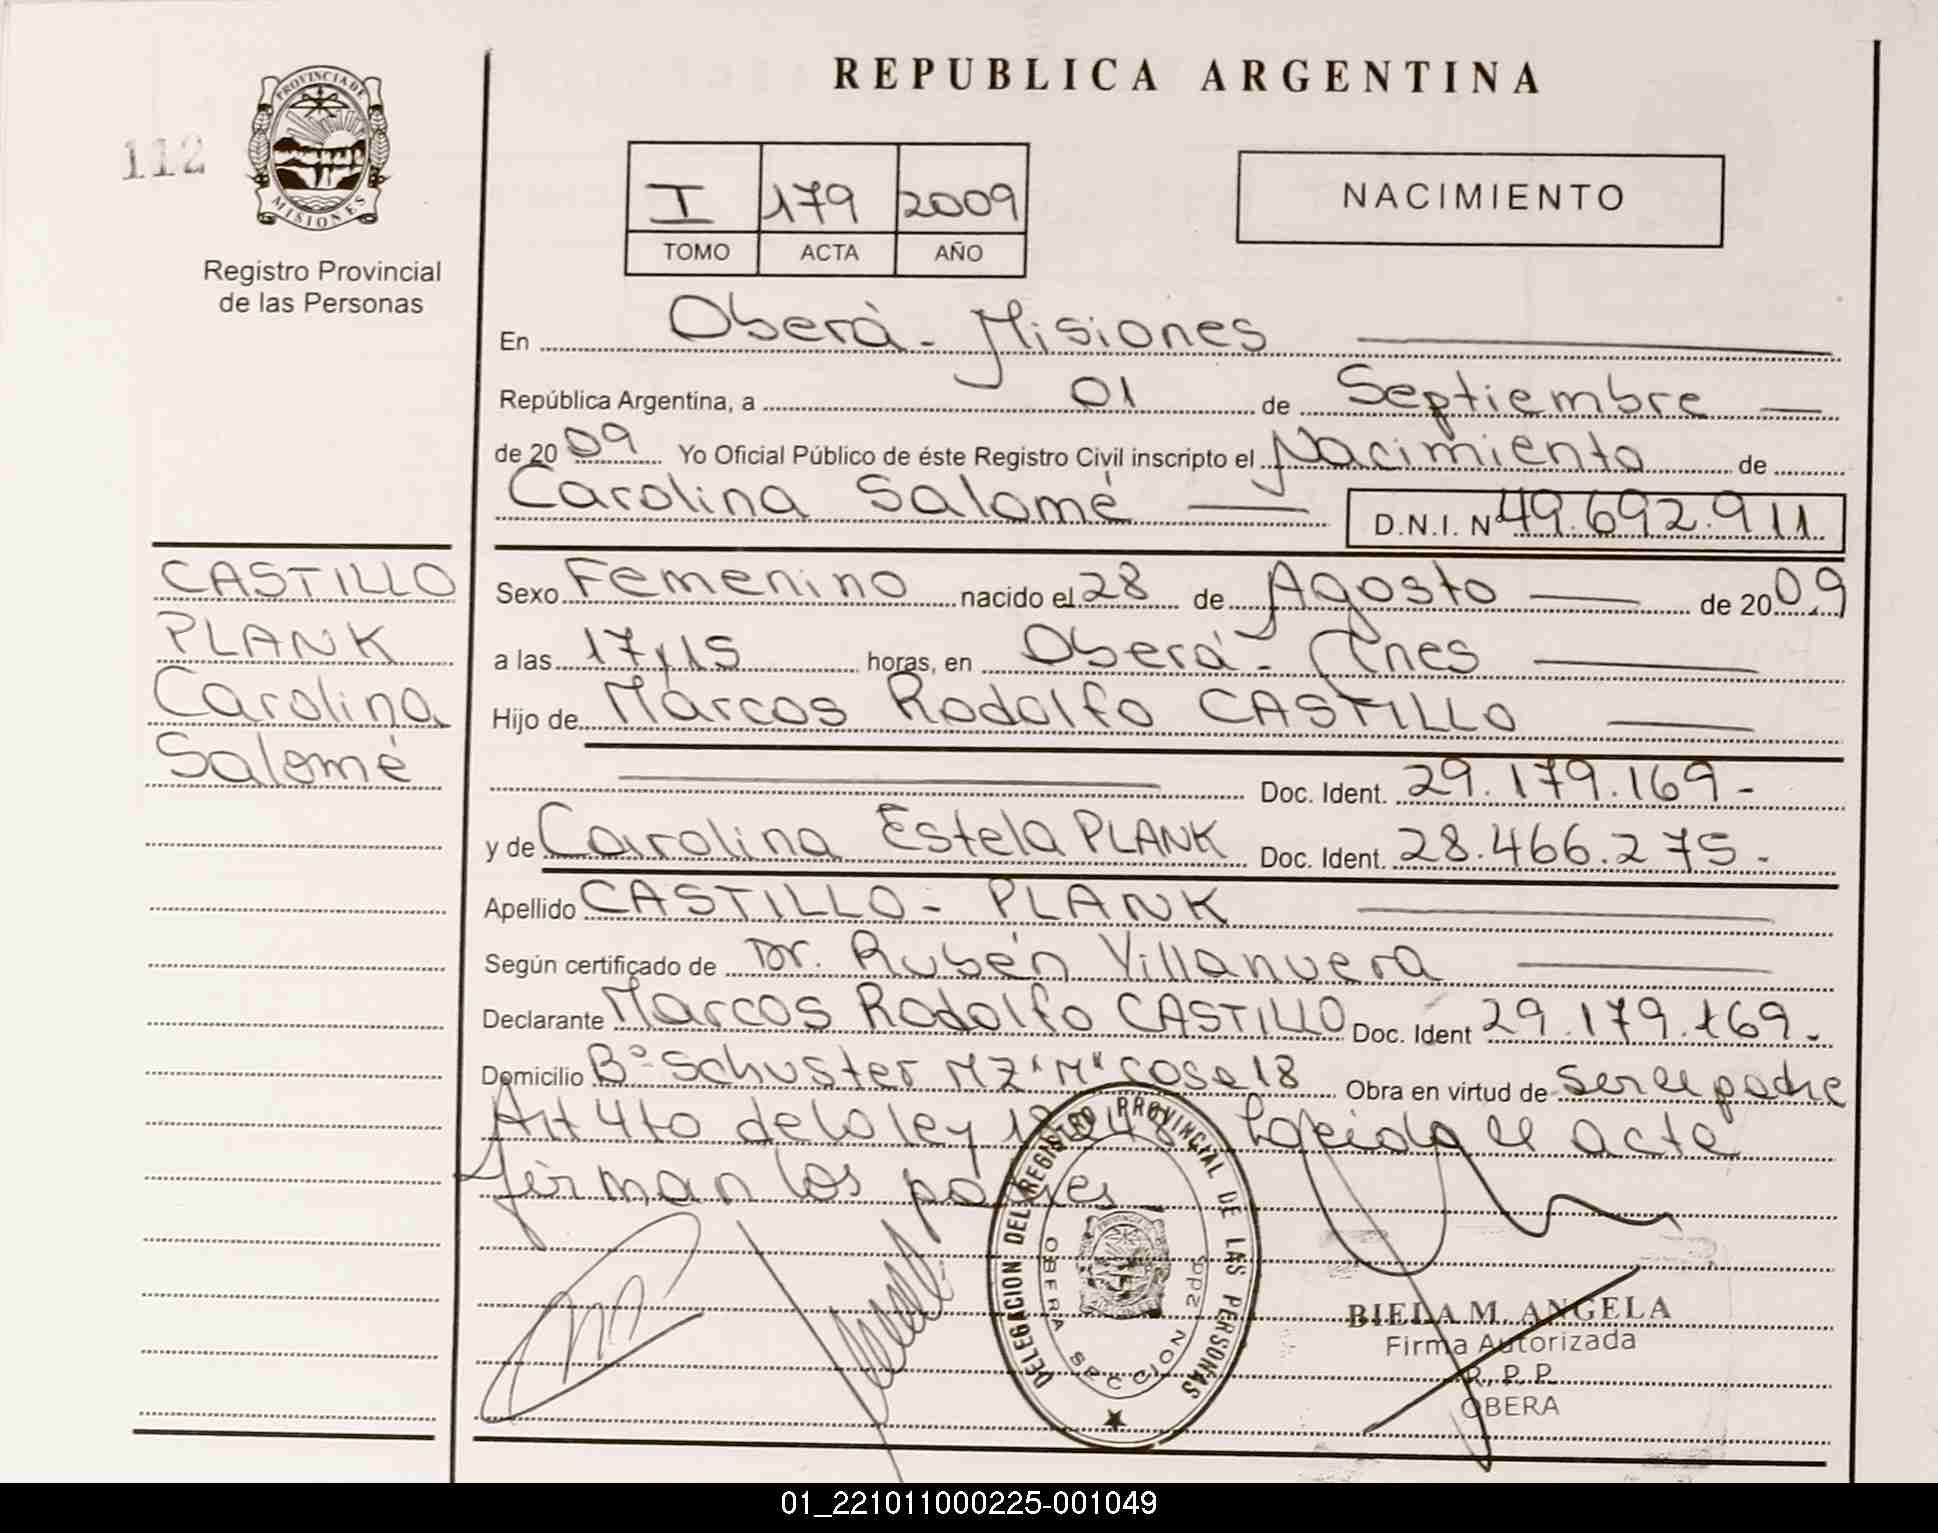 REPUBLICA ARGENTINA
112
PROVINCIA DE
MISIONES
Registro Provincial
de las Personas
I 179 2009
TOMO ACTA AÑO
NACIMIENTO
En Oberá - Misiones
República Argentina, a 01 de Septiembre
de 2009 Yo Oficial Público de éste Registro Civil inscripto el Nacimiento de
Carolina Salomé D.N.I. Nº 49.692.911
CASTILLO
PLANK
Carolina
Salomé
Sexo Femenino nacido el 28 de Agosto de 2009
a las 17,15 horas, en Oberá - Mnes
Hijo de Marcos Rodolfo CASTILLO
Doc. Ident. 29.179.169-
y de Carolina Estela PLANK Doc. Ident. 28.466.275-
Apellido CASTILLO - PLANK
Según certificado de Dr. Rubén Villanueva
Declarante Marcos Rodolfo CASTILLO Doc. Ident 29.179.169-
Domicilio Bº Schuster MZ "M" casa 18 Obra en virtud de ser el padre
Art 4to de la ley Leida el acta
firman los padres
DELEGACION DEL REGISTRO PROVINCIAL DE LAS PERSONAS
OBERA SECCION 2da
BIELA M. ANGELA
Firma Autorizada
R. P. P.
OBERA
01_221011000225-001049